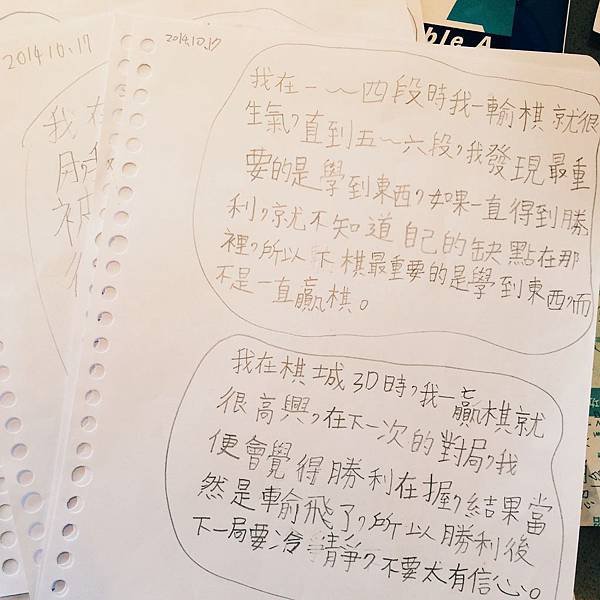 2014.10.17
2014.10.17
ble A
我在一～四段時我一輸棋就很
生氣，直到五～六段，我發現最重
要的是學到東西，如果一直得到勝
利，就不知道自己的缺點在那
裡，所以下棋最重要的是學到東西，而
不是一直贏棋。
我在棋城3D時，我一贏棋就
很高興，在下一次的對局，我
便會覺得勝利在握，結果當
然是輸飛了，所以勝利後
下一局要冷靜，不要太有信心。
我在